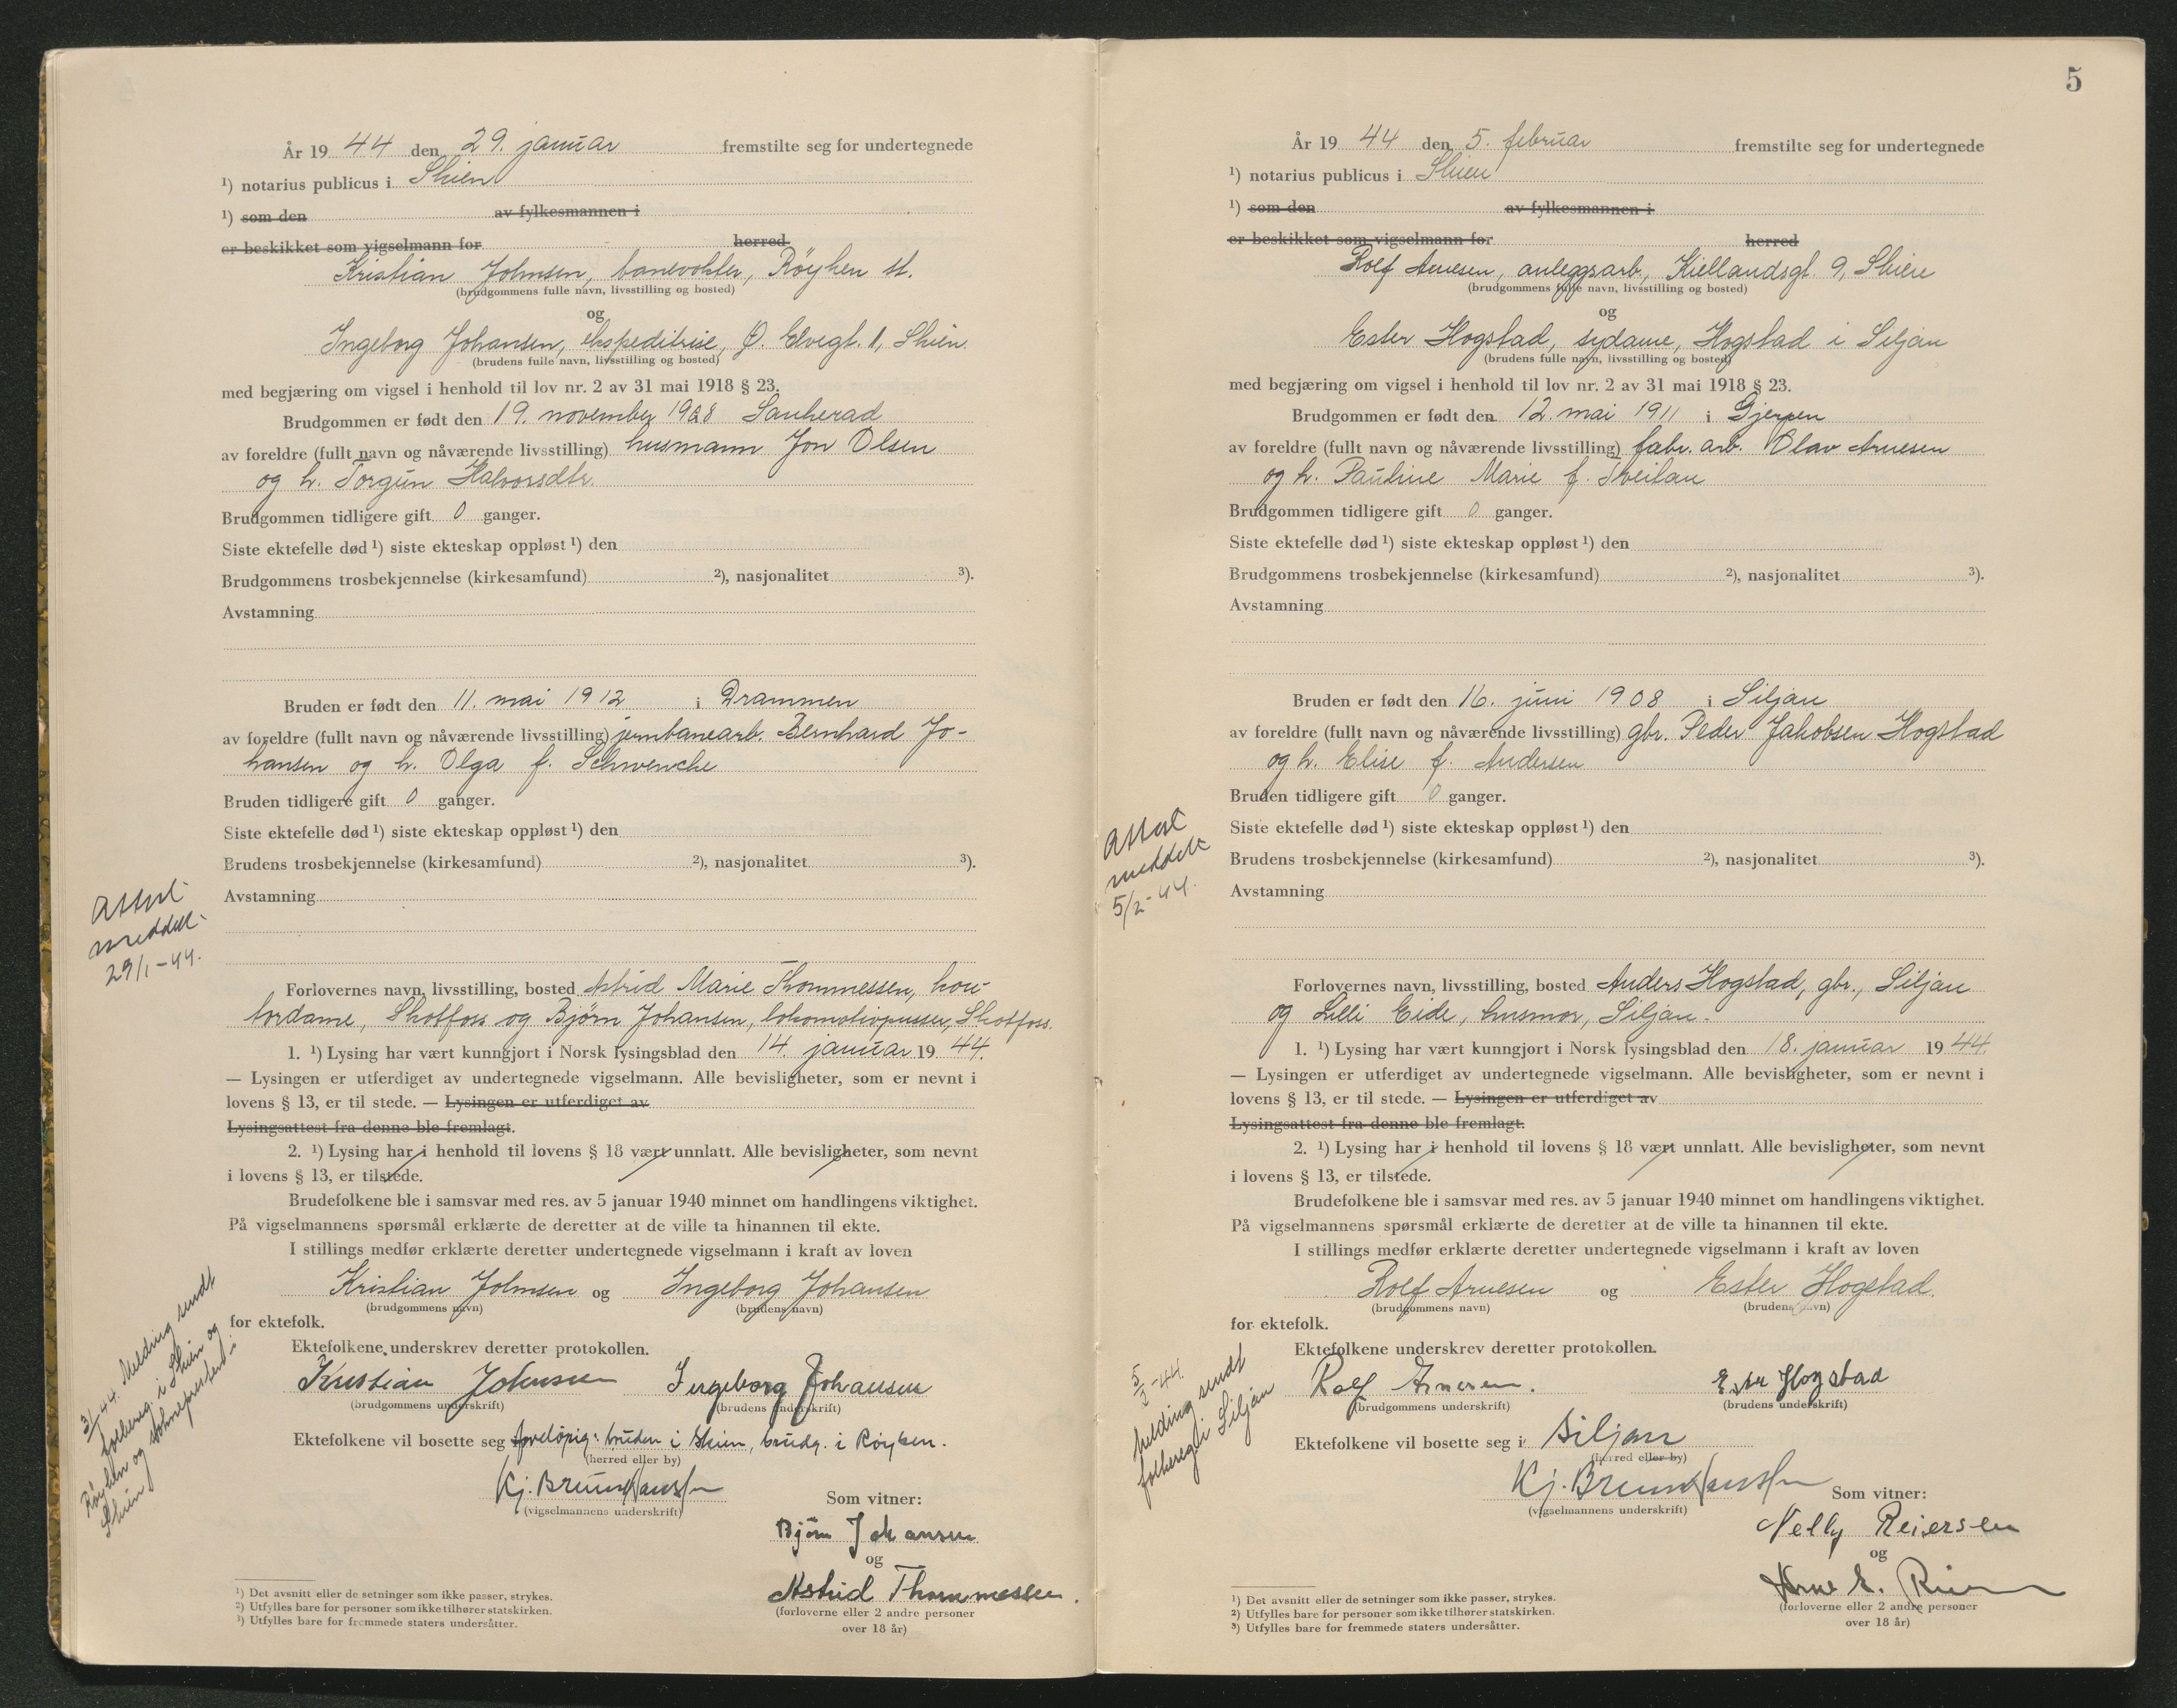 År 19 44 den 29. januar fremstilte seg for undertegnede
¹) notarius publicus i Skien
¹) som den av fylkesmannen i
er beskikket som vigselmann for herred
Kristian Johnsen, banevokter, Røyken st.
(brudgommens fulle navn, livsstilling og bosted)
og
Ingeborg Johansen, ekspeditrise, Ø. Elvegt. 1, Skien.
(brudens fulle navn, livsstilling og bosted)
med begjæring om vigsel i henhold til lov nr. 2 av 31 mai 1918 § 23.
Brudgommen er født den 19. november Sauherad
av foreldre (fullt navn og nåværende livsstilling) husmann Jon Olsen
og h. Torgun Halvorsdtr.
Brudgommen tidligere gift 0 ganger.
Siste ektefelle død ¹) siste ekteskap oppløst ¹) den
Brudgommens trosbekjennelse (kirkesamfund) ²), nasjonalitet ³).
Avstamning
Bruden er født den 11. mai 1912 i Drammen
av foreldre (fullt navn og nåværende livsstilling) jernbanearb. Bernhard Jo-
hansen og h. Olga f. Schwencke
Bruden tidligere gift 0 ganger.
Siste ektefelle død ¹) siste ekteskap oppløst ¹) den
Brudens trosbekjennelse (kirkesamfund) ²), nasjonalitet ³).
Avstamning
Attest
meddelt
29/1-44.
Forlovernes navn, livsstilling, bosted Astrid Marie Thommessen, kon-
tordame, Skotfoss og Bjørn Johansen, lokomotivpusser, Skotfoss.
1. ¹) Lysing har vært kunngjort i Norsk lysingsblad den 14. januar 19 44.
— Lysingen er utferdiget av undertegnede vigselmann. Alle bevisligheter, som er nevnt i
lovens § 13, er til stede. — Lysingen er utferdiget av
Lysingsattest fra denne ble fremlagt.
2. ¹) Lysing har i henhold til lovens § 18 vært unnlatt. Alle bevisligheter, som nevnt
i lovens § 13, er tilstede.
Brudefolkene ble i samsvar med res. av 5 januar 1940 minnet om handlingens viktighet.
På vigselmannens spørsmål erklærte de deretter at de ville ta hinannen til ekte.
I stillings medfør erklærte deretter undertegnede vigselmann i kraft av loven
Kristian Johnsen og Ingeborg Johansen
(brudgommens navn) (brudens navn)
for ektefolk.
Ektefolkene underskrev deretter protokollen.
Kristian Johnsen Ingeborg Johansen
(brudgommens underskrift) (brudens underskrift)
Ektefolkene vil bosette seg foreløpig: bruden i Skien, brudg. i Røyken.
(herred eller by)
Kj. Bruun Hanssen
(vigselmannens underskrift)
Som vitner:
Bjørn Johansen
og
Astrid Thommessen.
(forloverne eller 2 andre personer
over 18 år)
-44. Melding sendt
folkereg. i Skien og
Røyken og sokneprestene i
Skien
¹) Det avsnitt eller de setninger som ikke passer, strykes.
²) Utfylles bare for personer som ikke tilhører statskirken.
³) Utfylles bare for fremmede staters undersåtter.
5
År 19 44 den 5. februar fremstilte seg for undertegnede
¹) notarius publicus i Skien
¹) som den av fylkesmannen i
er beskikket som vigselmann for herred
Rolf Arnesen, anleggsarb., Kiellandsgt. 9, Skien
(brudgommens fulle navn, livsstilling og bosted)
og
Ester Hogstad, sydame, Hogstad i Siljan
(brudens fulle navn, livsstilling og bosted)
med begjæring om vigsel i henhold til lov nr. 2 av 31 mai 1918 § 23.
Brudgommen er født den 12. mai 1911 i Gjerpen
av foreldre (fullt navn og nåværende livsstilling) fabr. arb. Olav Arnesen
og h. Pauline Marie f. Tveitan
Brudgommen tidligere gift 0 ganger.
Siste ektefelle død ¹) siste ekteskap oppløst ¹) den
Brudgommens trosbekjennelse (kirkesamfund) ²), nasjonalitet ³).
Avstamning
Bruden er født den 16. juni 1908 i Siljan
av foreldre (fullt navn og nåværende livsstilling) gbr. Peder Jakobsen Hogstad
og h. Elise f. Andersen
Bruden tidligere gift 0 ganger.
Siste ektefelle død ¹) siste ekteskap oppløst ¹) den
Brudens trosbekjennelse (kirkesamfund) ²), nasjonalitet ³).
Avstamning
Attest
meddelt
5/2-44.
Forlovernes navn, livsstilling, bosted Anders Hogstad, gbr., Siljan
og Lilli Eide, husmor, Siljan.
1. ¹) Lysing har vært kunngjort i Norsk lysingsblad den 18. januar 19 44.
— Lysingen er utferdiget av undertegnede vigselmann. Alle bevisligheter, som er nevnt i
lovens § 13, er til stede. — Lysingen er utferdiget av
Lysingsattest fra denne ble fremlagt.
2. ¹) Lysing har i henhold til lovens § 18 vært unnlatt. Alle bevisligheter, som nevnt
i lovens § 13, er tilstede.
Brudefolkene ble i samsvar med res. av 5 januar 1940 minnet om handlingens viktighet.
På vigselmannens spørsmål erklærte de deretter at de ville ta hinannen til ekte.
I stillings medfør erklærte deretter undertegnede vigselmann i kraft av loven
Rolf Arnesen og Ester Hogstad.
(brudgommens navn) (brudens navn)
for ektefolk.
Ektefolkene underskrev deretter protokollen.
Rolf Arnesen. Ester Hogstad
(brudgommens underskrift) (brudens underskrift)
Ektefolkene vil bosette seg i Siljan
(herred eller by)
Kj. Bruun Hanssen
(vigselmannens underskrift)
Som vitner:
Nelly Reiersen
og
Arne E.
(forloverne eller 2 andre personer
over 18 år)
5/2-44.
Melding sendt
folkereg. i Siljan
¹) Det avsnitt eller de setninger som ikke passer, strykes.
²) Utfylles bare for personer som ikke tilhører statskirken.
³) Utfylles bare for fremmede staters undersåtter.